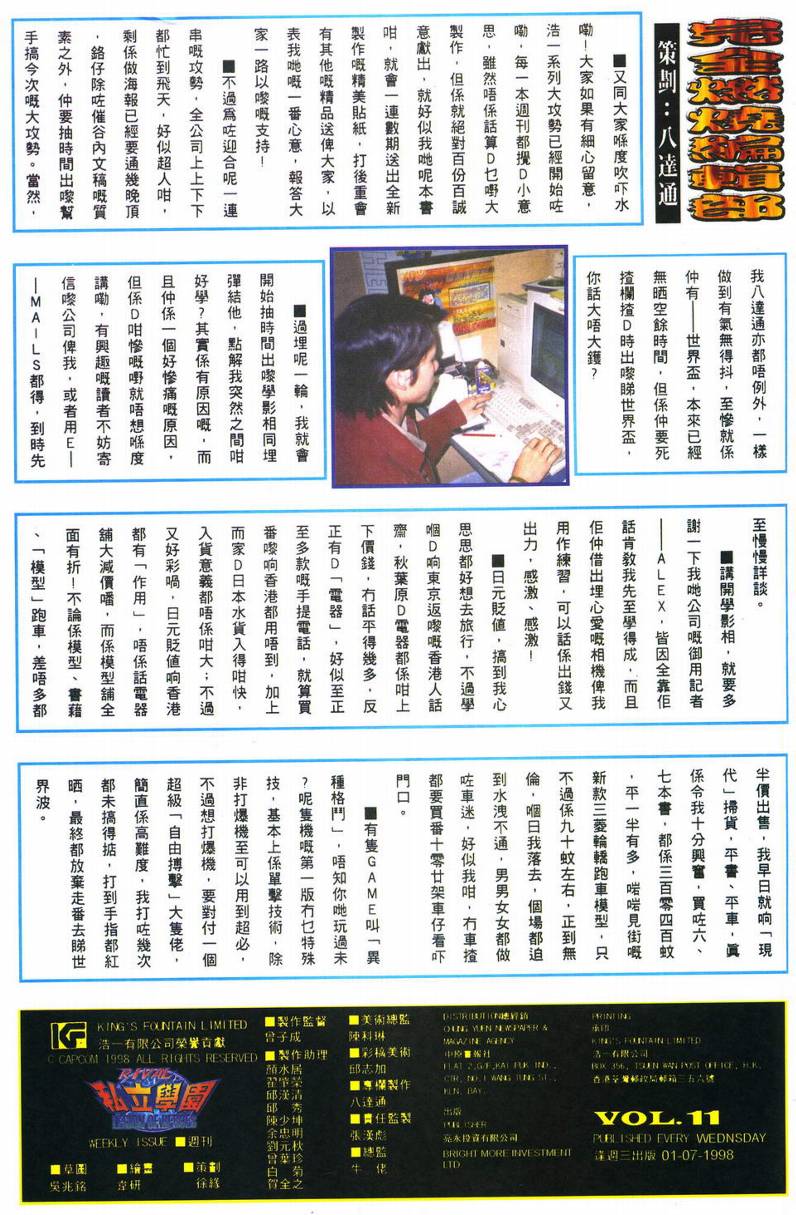 完全燃燒編輯部
策劃：八達通
■又同大家喺度吹吓水
嘞！大家如果有細心留意，
浩一系列大攻勢已經開始咗
嘞，每一本週刊都攪D小意
思，雖然唔係話算D乜嘢大
製作，但係就絕對百份百誠
意獻出，就好似我哋呢本書
咁，就會一連數期送出全新
製作嘅精美貼紙，打後重會
有其他嘅精品送俾大家，以
表我哋嘅一番心意，報答大
家一路以嚟嘅支持！
■不過爲咗迎合呢一連
串嘅攻勢，全公司上上下下
都忙到飛天，好似超人咁，
剩係做海報已經要通幾晚頂
，銘仔除咗催谷內文稿嘅質
素之外，仲要抽時間出嚟幫
手搞今次嘅大攻勢。當然，
我八達通亦都唔例外，一樣
做到有氣無得抖，至慘就係
仲有——世界盃，本來已經
無晒空餘時間，但係仲要死
揸爛揸D時出嚟睇世界盃，
你話大唔大鑊？
■過埋呢一輪，我就會
開始抽時間出嚟學影相同埋
彈結他，點解我突然之間咁
好學？其實係有原因嘅，而
且仲係一個好慘痛嘅原因，
但係D咁慘嘅嘢就唔想喺度
講嘞，有興趣嘅讀者不妨寄
信嚟公司俾我，或者用E—
—MAILS都得，到時先
至慢慢詳談。
■講開學影相，就要多
謝一下我哋公司嘅御用記者
——ALEX，皆因全靠佢
話肯教我先至學得成，而且
佢仲借出埋心愛嘅相機俾我
用作練習，可以話係出錢又
出力，感激、感激！
■日元貶值，搞到我心
思思都好想去旅行，不過學
嗰D响東京返嚟嘅香港人話
齋，秋葉原D電器都係咁上
下價錢，冇話平得幾多，反
正有D「電器」，好似至正
至多款嘅手提電話，就算買
番嚟响香港都用唔到，加上
而家D日本水貨入得咁快，
入貨意義都唔係咁大；不過
又好彩喎，日元貶值响香港
都有「作用」，唔係話電器
舖大減價噃，而係模型舖全
面有折！不論係模型、書藉
、「模型」跑車，差唔多都
半價出售，我早日就响「現
代」掃貨，平書、平車，眞
係令我十分興奮，買咗六、
七本書，都係三百零四百蚊
，平一半有多，啱啱見街嘅
新款三菱輪轎跑車模型，只
不過係九十蚊左右，正到無
倫，嗰日我落去，個場都迫
到水洩不通，男男女女都做
咗車迷，好似我咁，冇車揸
都要買番十零廿架車仔看吓
門口。
■有隻GAME叫「異
種格鬥」，唔知你哋玩過未
？呢隻機嘅第一版冇乜特殊
技，基本上係單擊技術，除
非打爆機至可以用到超必，
不過想打爆機，要對付一個
超級「自由搏擊」大隻佬，
簡直係高難度，我打咗幾次
都未搞得掂，打到手指都紅
晒，最終都放棄走番去睇世
界波。
KING'S FOUNTAIN LIMITED
浩一有限公司榮譽貢獻
© CAPCOM 1998 ALL RIGHTS RESERVED
私立學園
WEEKLY ISSUE ■週刊
■草圖
吳兆銘
■繪畫
韋研
■策劃
徐緣
■製作監督
曾子成
■製作助理
顏水居
翟肇榮
邱漢清
邱 秀
陳少坤
余忠明
劉元秋
曾葉珍
白 菊
賀全之
■美術總監
陳科琳
■彩稿美術
邱志加
■專欄製作
八達通
■責任監製
張漢彪
■總監
牛 佬
DISTRIBUTION總經銷
CHUNG YUEN NEWSPAPER &
MAGAZINE AGENCY
中原書報社
出版
PUBLISHER
亮永投資有限公司
BRIGHT MORE INVESTMENT
LTD
PRINTING
承印
KING'S FOUNTAIN LIMITED
浩一有限公司
BOX 356, TSUEN WAN POST OFFICE, H.K.
香港荃灣郵政局郵箱三五六號
VOL.11
PUBLISHED EVERY WEDNSDAY
逢週三出版 01-07-1998